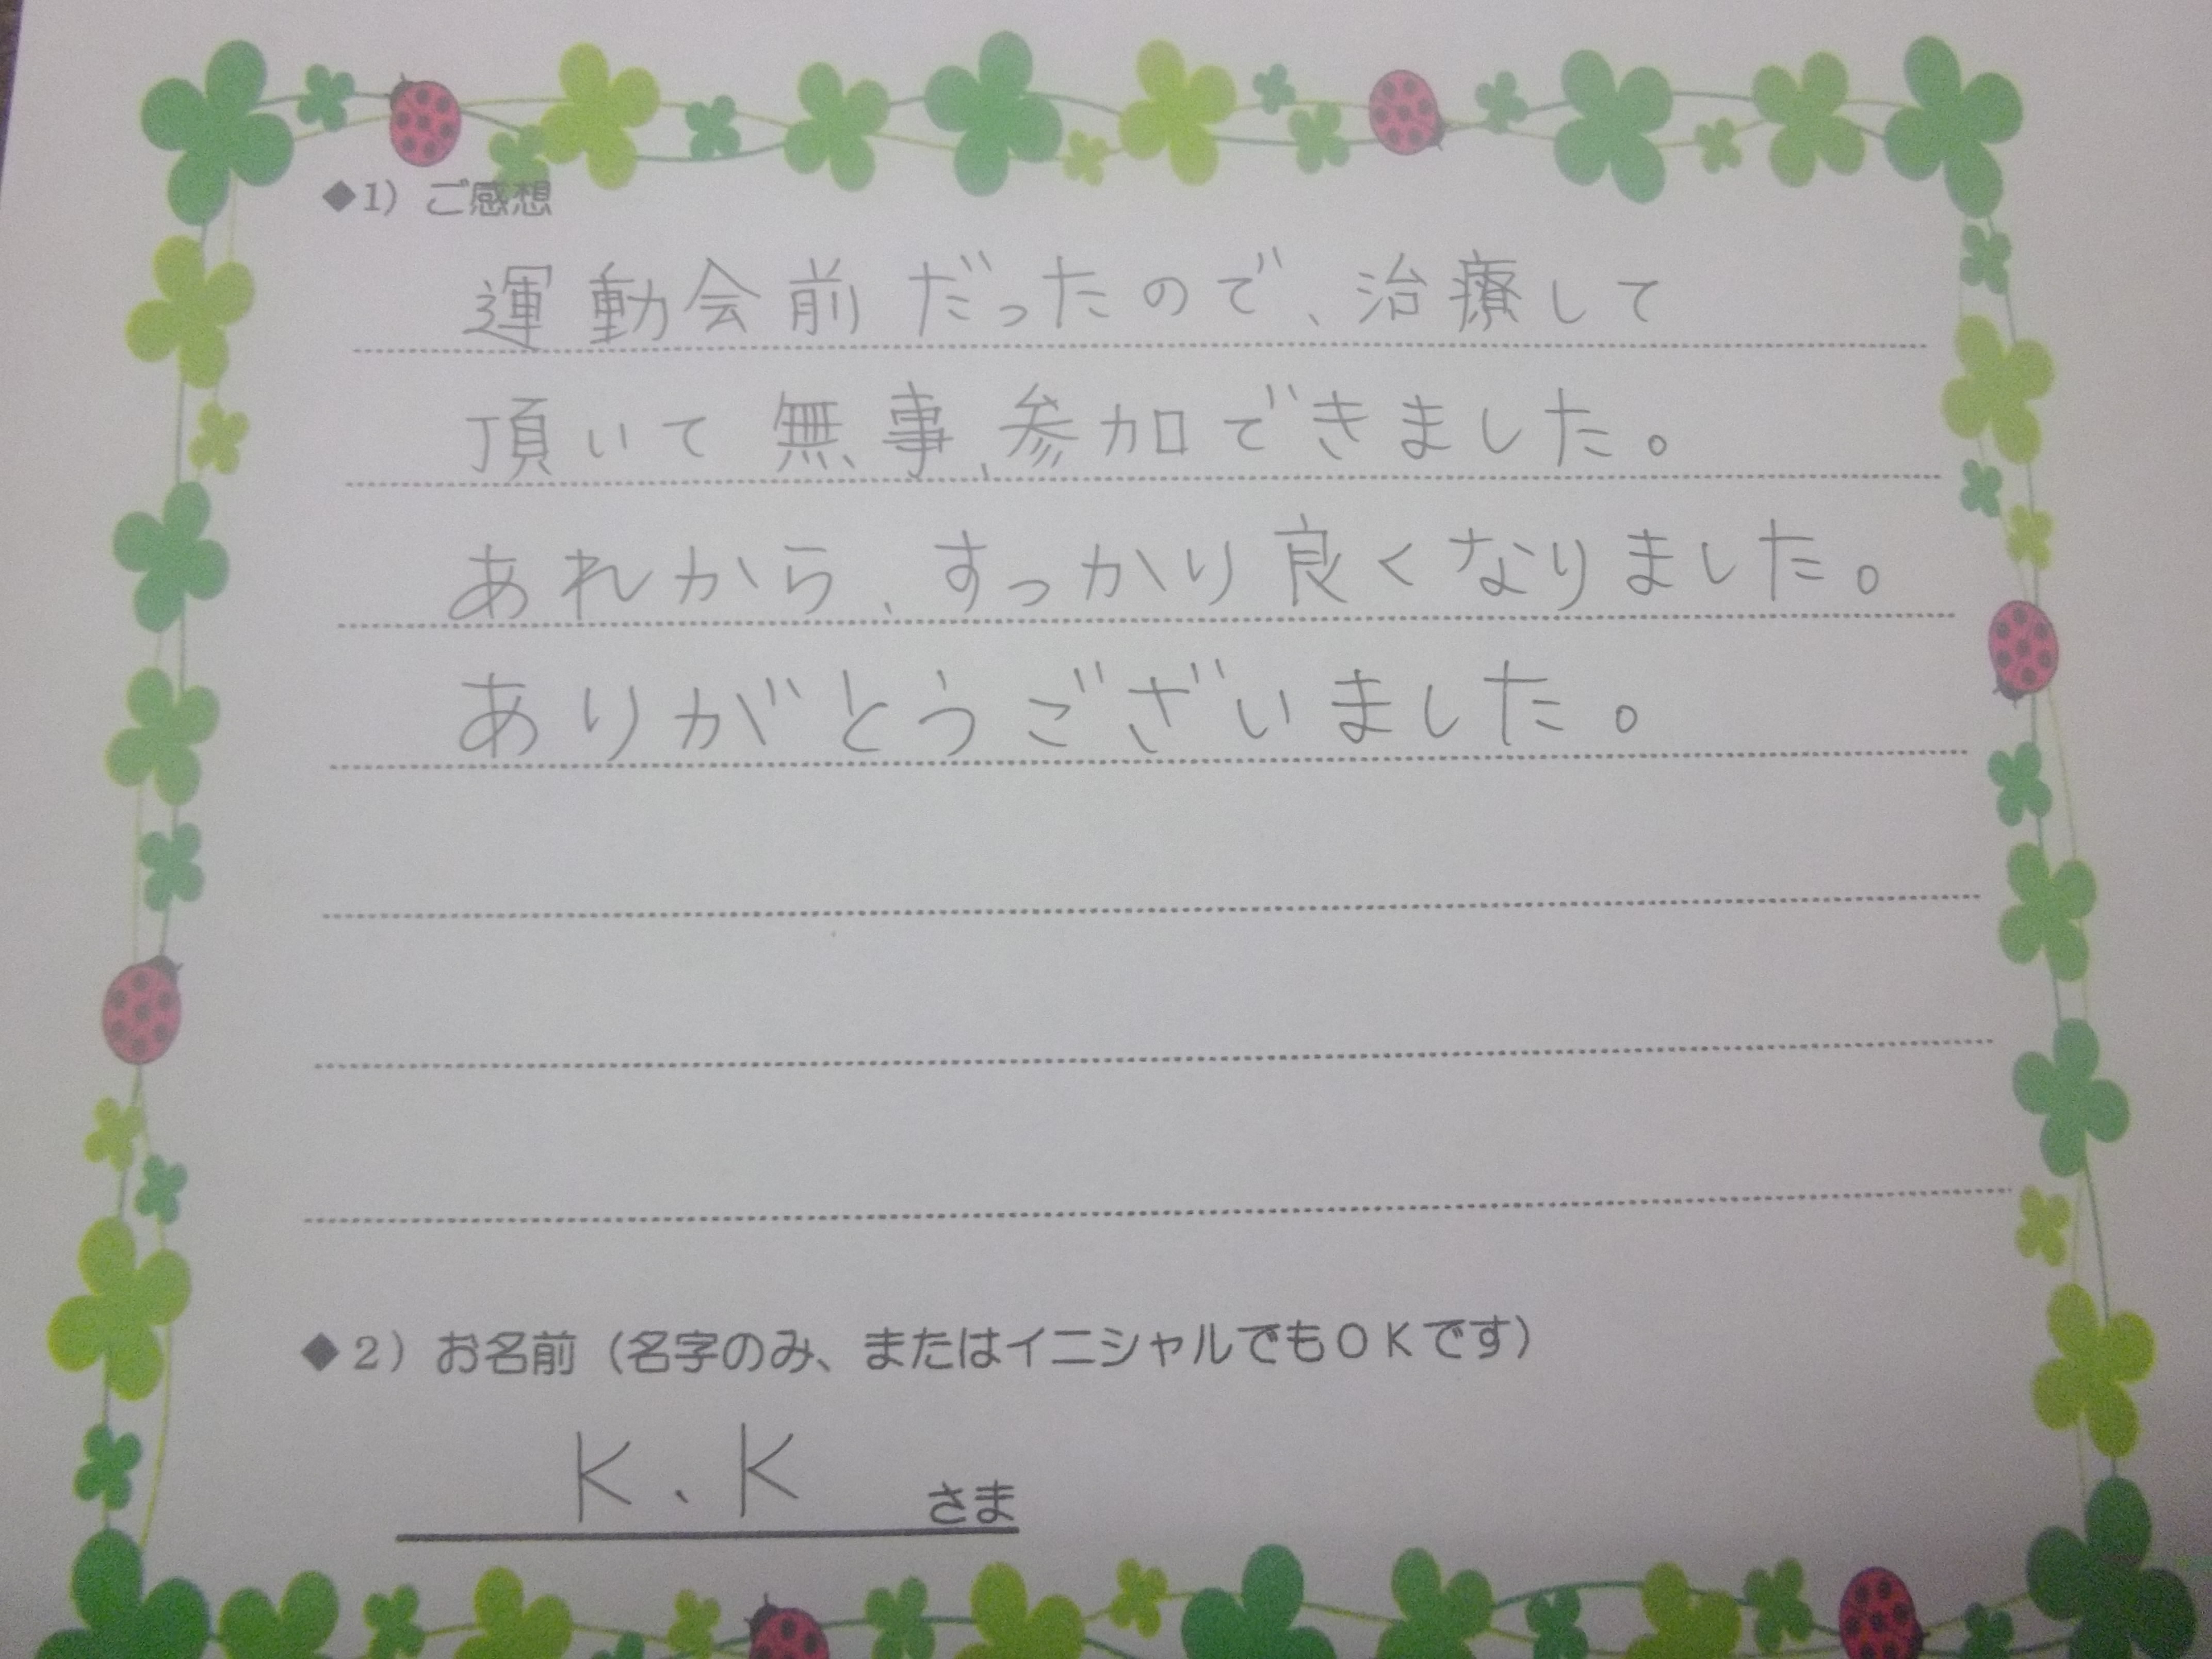 ◆1）ご感想
運動会前だったので、治療して
頂いて無事、参加できました。
あれから、すっかり良くなりました。
ありがとうございました。
◆2）お名前（名字のみ、またはイニシャルでもＯＫです）
K.K さま